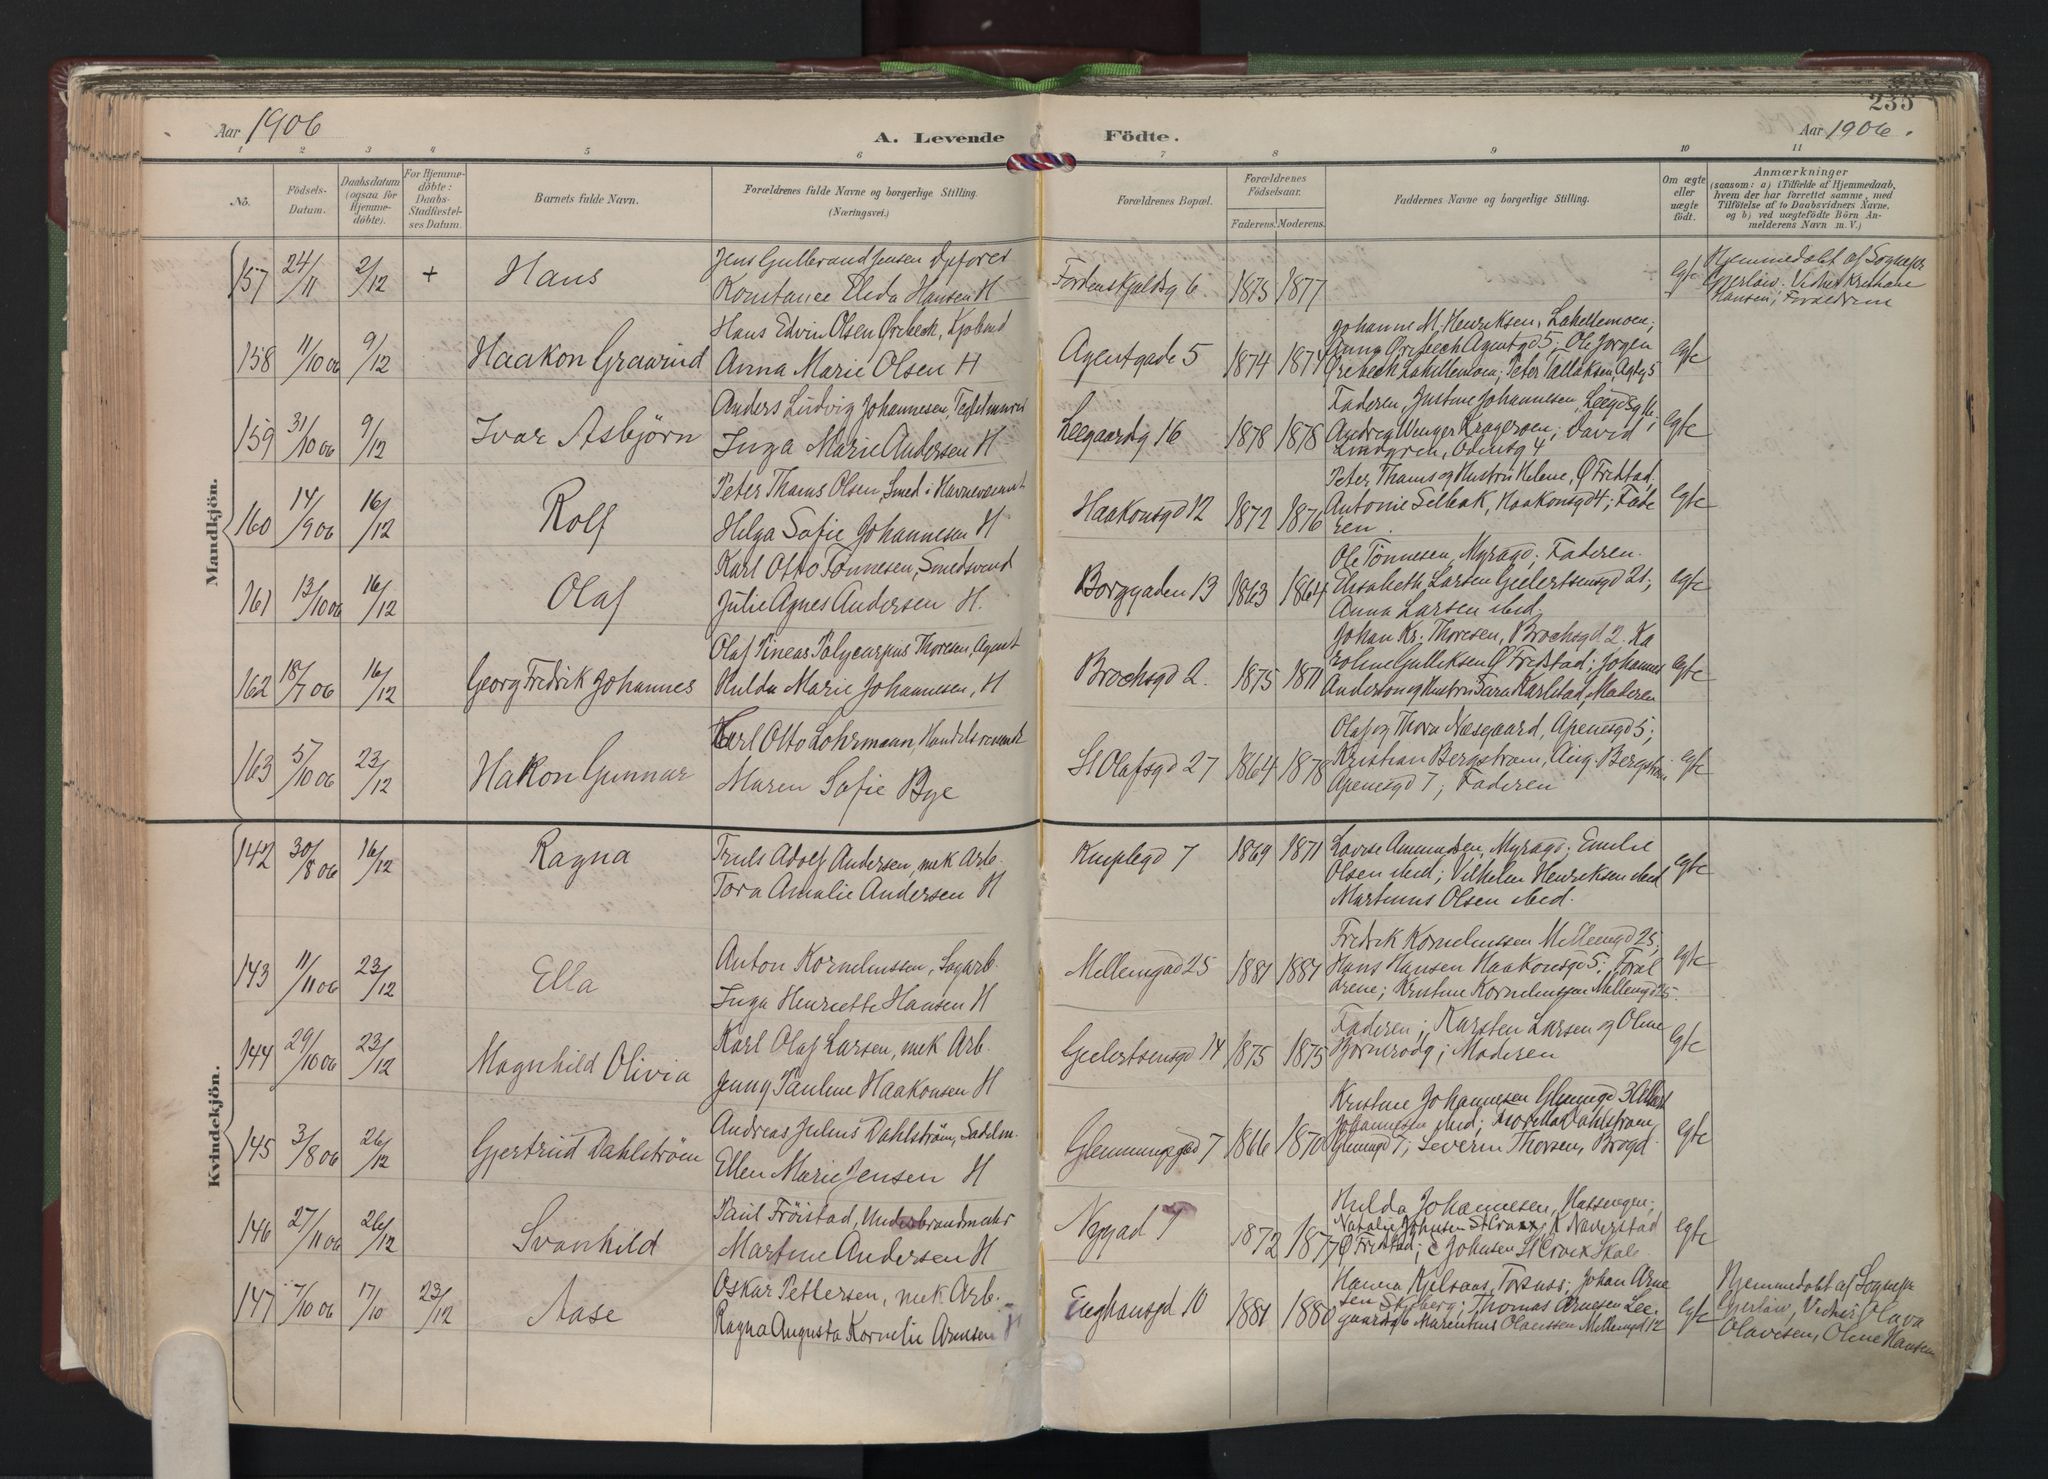 235
Aar 1906
A. Levende Födte.
Aar 1906.
1 2 3 4 5 6 7 8 9 10 11
No.
Födsels-Datum.
Daabsdatum (ogsaa for Hjemmedöbte).
For Hjemmedöbte: Daabs-Stadfæstelses Datum.
Barnets fulde Navn.
Forældrenes fulde Navne og borgerlige Stilling.
(Næringsvei.)
Forældrenes Bopæl.
Forældrenes Födselsaar.
Faderens. Moderens.
Faddernes Navne og borgerlige Stilling.
Om ægte eller uægte födt.
Anmærkninger
(saasom: a) i Tilfælde af Hjemmedaab,
hvem der har forrettet samme, med
Tilföielse af to Daabsvidners Navne,
og b) ved uægtefödte Börn Anmelderens Navn m. V.)
Mandkjön.
157 24/11 2/12 + Hans
Jens Gullbrand Jensen Opfører
Konstance Elida Hansen H
6 1875 1877
Egte
Hjemmedøbt af Sognepr
Hansen; Forældrene
158 11/10 06 9/12 Haakon Grawind
Hans Edvin Olsen Ørebeck, Kjøbmd
Anna Marie Olsen H
Agentgade 5 1874 1874
Johanne M. Henriksen, Lahellemoen;
Anna Ørebech Agentgd 5; Ole Jørgen
Ørebeck Lahellemoen; Peter Tallaksen, Agtg 5
Egte
159 31/10 06 9/12 Ivar Asbjørn
Anders Ludvig Johannesen, Teglmurer
Inga Marie Andersen H
Leegaardsg 16 1878 1878
Faderen, Justine Johannesen,
Andrea Wenger Kragerøen; David
Lindgren, Odinsg 4
Egte
160 14/9 06 16/12 Rolf
Peter Thams Olsen, Smed i Havnevæsenet
Helga Sofie Johannesen H
Haakonsgd 12 1872 1876
Peter Thams og Hustru Helene, Ø Fredstad,
Antonie Selbak, Haakonsgd 4; Fade
ren.
Egte
161 13/10 06 16/12 Olaf
Karl Otto Tønnesen, Smedsvend
Julie Agnes Andersen H.
Borggaden 13 1863 1864
Ole Tönnesen, Myragd; Faderen.
Elisabeth Larsen Gielertsensgd 21;
Anna Larsen ibid.
Egte
162 18/7 06 16/12 Georg Fredrik Johannes
Olaf Pineas Polycarpus Thoresen, Agent
Hulda Marie Johannesen, H
Brochsgd 2. 1875 1871
Johan Kr. Thoresen, Brochsgd 2. Ka
roline Gulliksen Ø Fredstad; Johannes
Anderson og Hustru Sara Karlstad, Moderen
Egte
163 5/10 06 23/12 Hakon Gunnar
Karl Otto Lohrmann, Handelsreisende
Maren Sofie Bye
St Olafsgd 27 1864 1878
Olaf og Thora Næsgaard, Apenesgd 5;
Kristian Bergstrøm, Aug. Bergstrøm
Apenesgd 7; Faderen
Egte
Kvindekjön.
142 30/8 06 16/12 Ragna
Truls Adolf Andersen, mek Arb.
Tora Amalie Andersen H
Kniplegd 7 1869 1871
Lovise Amundsen, Myragd; Emilie
Olsen ibid; Vilhelm Henriksen ibid
Martinus Olsen ibid.
Egte
143 11/11 06 23/12 Ella
Anton Korneliussen, Sagarb.
Inga Henriette Hansen H
Mellemgad 25 1881 1881
Fredrik Korneliussen Mellemgd 25;
Hans Hansen Haakonsgd 5; Foræl
drene; Kristine Korneliussen Mellemgd 25.
Egte
144 29/10 06 23/12 Magnhild Olivia
Karl Olaf Larsen, mek Arb.
Jenny Pauline Haakonsen H
Gielertsensgd 14 1875 1875
Faderen; Karsten Larsen og Oline
Moderen
Egte
145 3/8 06 26/12 Gjertrud Dahlström
Andreas Julius Dahlström, Sadelm.
Ellen Marie Jensen H
Glemmengad 7 1866 1870
Kristine Johannesen Glemgd 3
Johannesen ibid; Dahlström,
Glemgd 7; Severin Thorsen, Brogd.
Egte
146 27/11 06 26/12 Svanhild
Paul Fröistad, Underbrandmester
Martine Andersen H
Nygad 7 1872 1877
Hulda Johannesen, Hassengen;
Natalie Johnsen St Croix; K Naverstad
Ø Fredstad; Johnsen St Croix Skole
Egte
147 7/10 06 17/10 23/12 Aase
Oskar Pettersen, mek Arb.
Ragna Augusta Kornelie Arnesen H
10 1881 1880
Hanna Johan Arne
sen Thomas Arnesen Lee
gaardsg 6 Marentius Olaussen Mellemgd 12
Egte
Hjemmedøbt af Sognepr
Vidner Olava
Olavesen, Oline Hansen